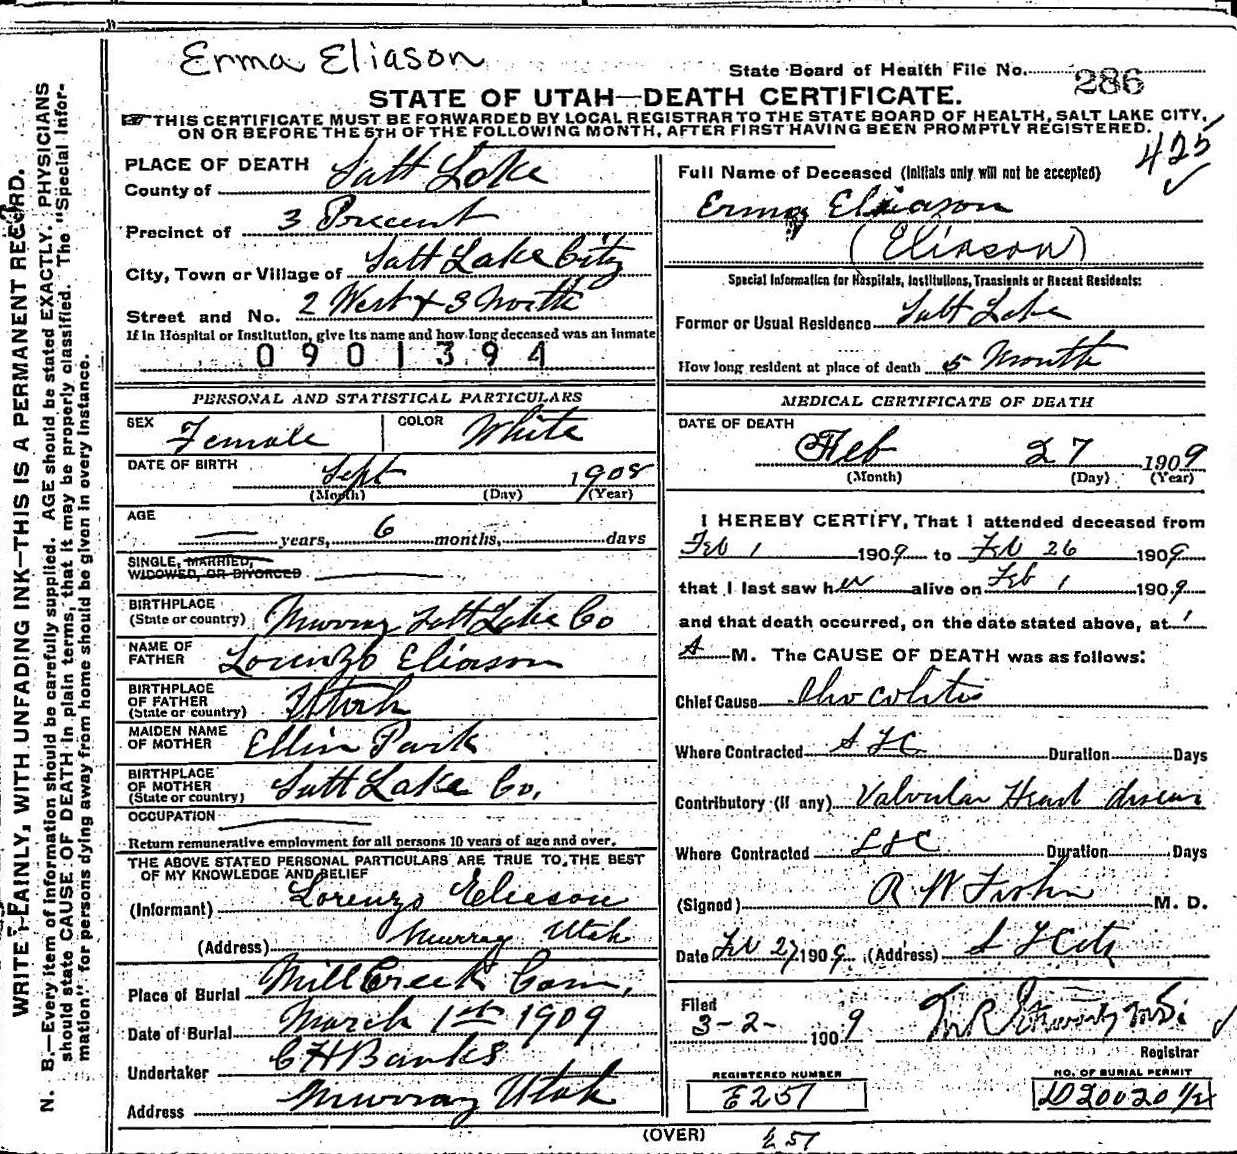 Erma Eliason
State Board of Health File No. 286
STATE OF UTAH—DEATH CERTIFICATE.
THIS CERTIFICATE MUST BE FORWARDED BY LOCAL REGISTRAR TO THE STATE BOARD OF HEALTH, SALT LAKE CITY,
ON OR BEFORE THE 5TH OF THE FOLLOWING MONTH, AFTER FIRST HAVING BEEN PROMPTLY REGISTERED.
425
WRITE PLAINLY, WITH UNFADING INK—THIS IS A PERMANENT RECORD.
N. B.—Every item of information should be carefully supplied. AGE should be stated EXACTLY. PHYSICIANS
should state CAUSE OF DEATH in plain terms, that it may be properly classified. The "Special Infor-
mation" for persons dying away from home should be given in every instance.
PLACE OF DEATH
County of Salt Lake
Precinct of 3 Precent
City, Town or Village of Salt Lake City
Street and No. 2 West & 3 North
If in Hospital or Institution, give its name and how long deceased was an inmate
0901394
PERSONAL AND STATISTICAL PARTICULARS
SEX Female COLOR White
DATE OF BIRTH Sept 1908
(Month) (Day) (Year)
AGE — years, 6 months, days
SINGLE, MARRIED,
WIDOWED, OR DIVORCED
BIRTHPLACE
(State or country) Murray Salt Lake Co
NAME OF
FATHER Lorenzo Eliason
BIRTHPLACE
OF FATHER
(State or country) Utah
MAIDEN NAME
OF MOTHER Ellin Park
BIRTHPLACE
OF MOTHER
(State or country) Salt Lake Co.
OCCUPATION
Return remunerative employment for all persons 10 years of age and over.
THE ABOVE STATED PERSONAL PARTICULARS ARE TRUE TO THE BEST
OF MY KNOWLEDGE AND BELIEF
(Informant) Lorenzo Eelieson
(Address) Murray Utah
Place of Burial Mill Creek Cem,
Date of Burial March 1st 1909
Undertaker C H Banks
Address Murray Utah
Full Name of Deceased (Initials only will not be accepted)
Erma Eliason
(Eliason)
Special Information for Hospitals, Institutions, Transients or Recent Residents:
Former or Usual Residence Salt Lake
How long resident at place of death 5 Month
MEDICAL CERTIFICATE OF DEATH
DATE OF DEATH
Feb 27 1909
(Month) (Day) (Year)
I HEREBY CERTIFY, That I attended deceased from
Feb 1 1909 to Feb 26 1909
that I last saw her alive on Feb 1 1909
and that death occurred, on the date stated above, at 1
A M. The CAUSE OF DEATH was as follows:
Chief Cause Iliocolitis
Where Contracted S L C Duration Days
Contributory (if any) Valvular Heart disease
Where Contracted S L C Duration Days
(Signed) R W M. D.
Date Feb 27 1909. (Address) S L City
Filed
3-2- 1909
Registrar
REGISTERED NUMBER
E257
NO. OF BURIAL PERMIT
D20020
(OVER)
257